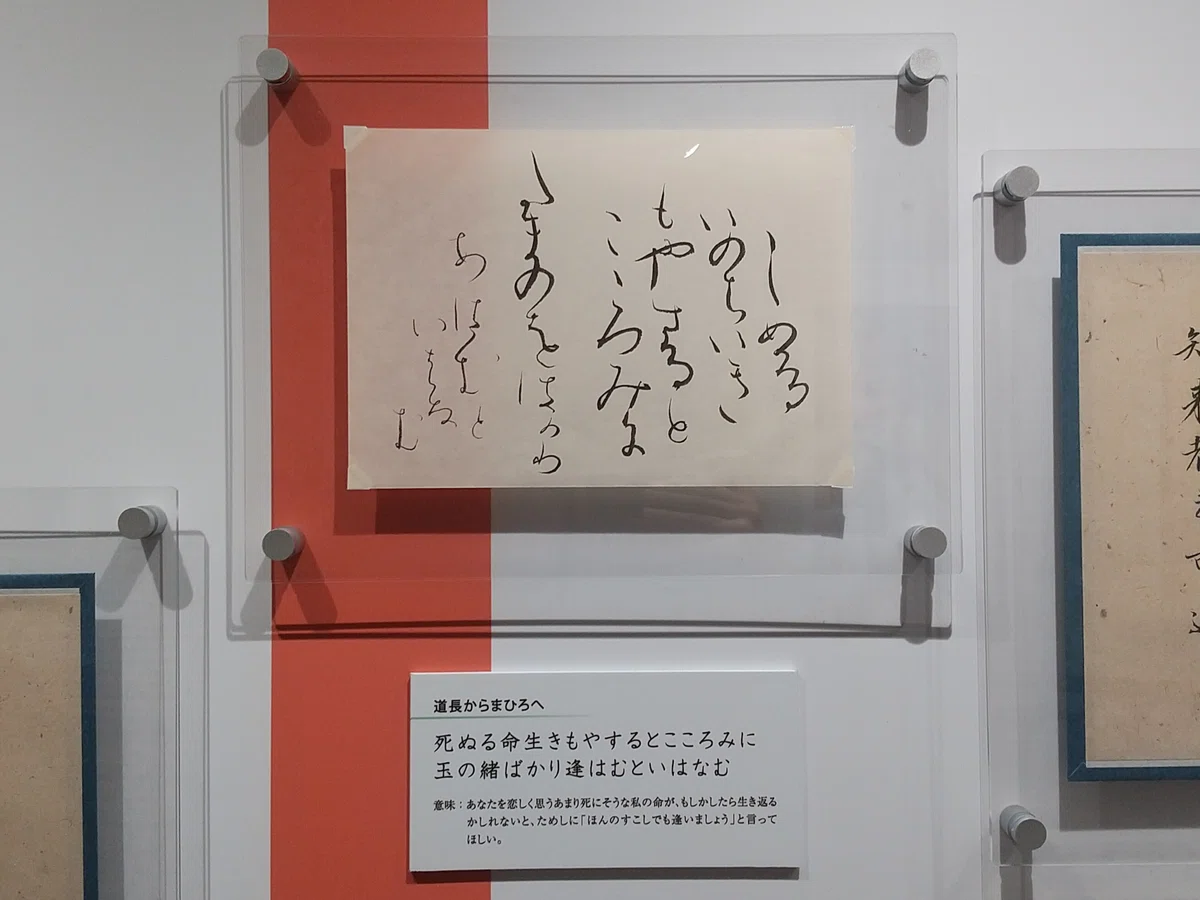 しぬる
いのちいき
もやすると
こゝろみに
たまのをはかり
あはむと
いはな
む
知来者之可追
道長からまひろへ
死ぬる命生きもやするとこころみに
玉の緒ばかり逢はむといはなむ
意味:あなたを恋しく思うあまり死にそうな私の命が、もしかしたら生き返る
かしれないと、ためしに「ほんのすこしでも逢いましょう」と言って
ほしい。